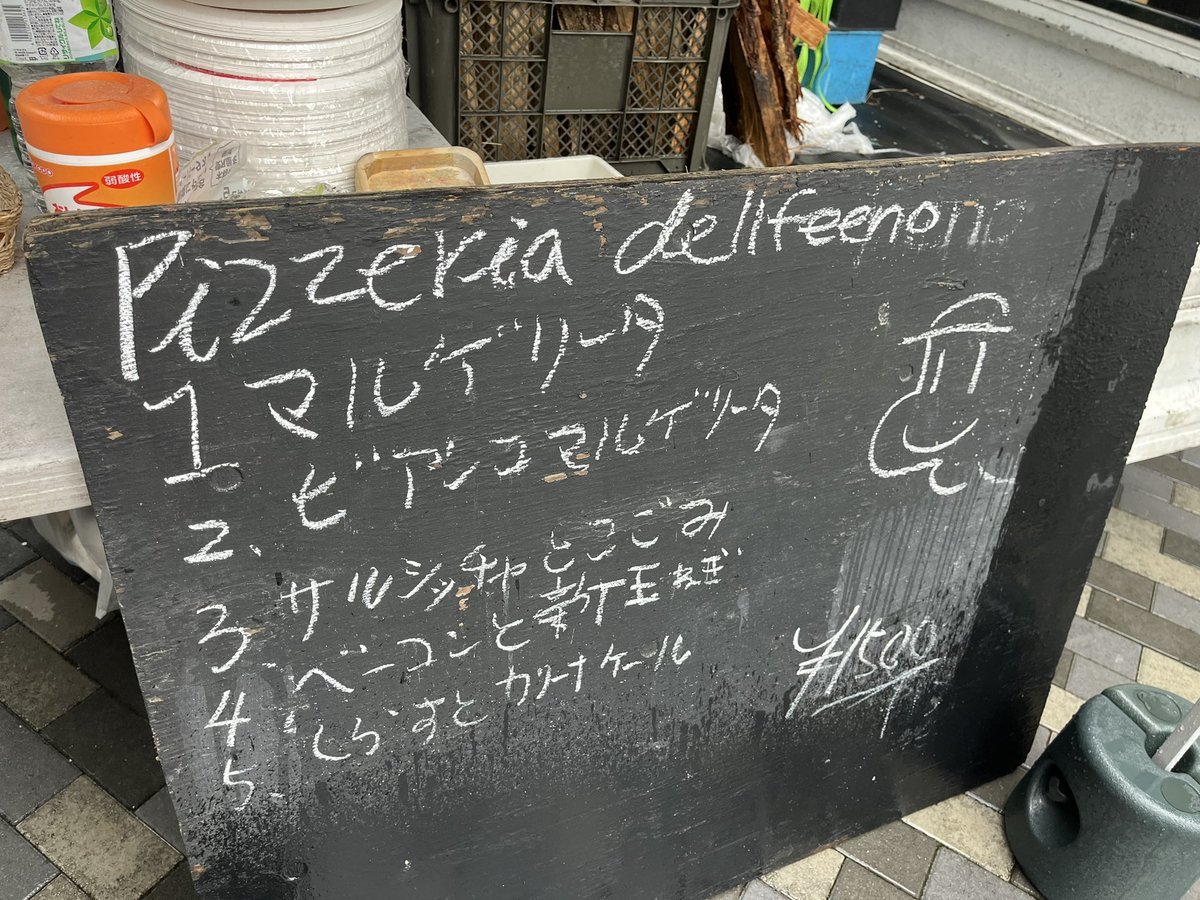 弱酸性
Pizzeria delifeenono
1 マルゲリータ
2、ビアンコマルゲリータ
3、サルシッチャとこごみ
4、ベーコンと新玉ねぎ
5、しらすとカリーナケール
¥1500